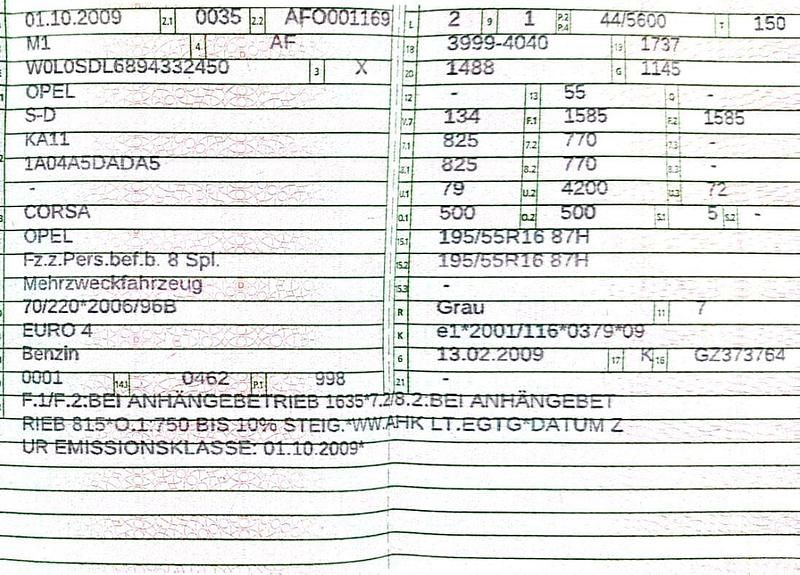 01.10.2009 2.1 0035 2.2 AFO001169
M1 4 AF
W0L0SDL6894332450 3 X
OPEL
S-D
KA11
1A04A5DADA5
-
CORSA
OPEL
Fz.z.Pers.bef.b. 8 Spl.
Mehrzweckfahrzeug
70/220*2006/96B
EURO 4
Benzin
0001 14.1 0462 P.1 998
L 2 9 1 P.2 P.4 44/5600 T 150
18 3999-4040 19 1737
20 1488 G 1145
12 - 13 55 Q -
V.7 134 F.1 1585 F.2 1585
7.1 825 7.2 770 7.3 -
8.1 825 8.2 770 8.3 -
U.1 79 U.2 4200 U.3 72
O.1 500 O.2 500 S.1 5 S.2 -
15.1 195/55R16 87H
15.2 195/55R16 87H
15.3 -
R Grau 11 7
K e1*2001/116*0379*09
6 13.02.2009 17 K 16 GZ373764
21 -
F.1/F.2:BEI ANHÄNGEBETRIEB 1635*7.2/8.2:BEI ANHÄNGEBET
RIEB 815*O.1:750 BIS 10% STEIG.*WW.AHK LT.EGTG*DATUM Z
UR EMISSIONSKLASSE: 01.10.2009*